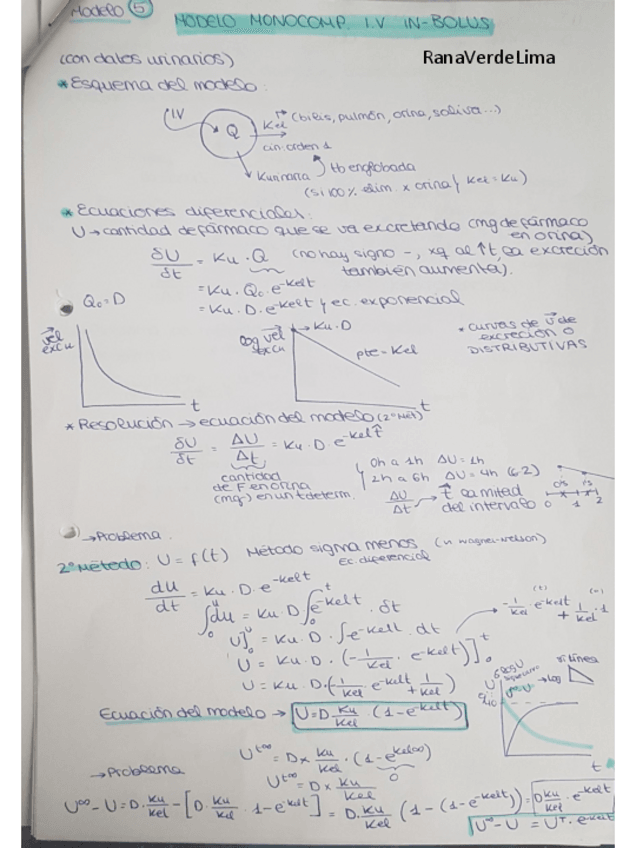 Modelo 5
MODELO MONOCOMP. I.V IN-BOLUS
(con datos urinarios)
RanaVerdeLima
* Esquema del modelo:
IV
Q
Kel (bilis, pulmón, orina, saliva...)
cin. orden 1
Kurinaria
tb englobada
(si 100% elim. x orina, Kel = Ku)
* Ecuaciones diferenciales:
U → cantidad de fármaco que se va excretando (mg de fármaco
en orina)
δU/δt = Ku · Q (no hay signo -, xq al ↑t, la excreción
también aumenta).
= Ku · Q₀ · e^-kelt
Q₀ = D
= Ku · D · e^-kelt y ec. exponencial
vel excu
t
log vel excu
Ku · D
pte = Kel
t
* curvas de v de
excreción o
DISTRIBUTIVAS
* Resolución → ecuación del modelo (2º Mét)
δU/δt = ΔU/Δt = Ku · D e^-kelt̄
cantidad
de F en orina
(mg) en un t determ.
0h a 1h ΔU = 1h
2h a 6h ΔU = 4h (6-2)
ΔU/Δt → t̄ la mitad
del intervalo
0 1 2
→ Problema.
2º Método: U = f(t) Método sigma menos (n wagner-nelson)
Ec. diferencial
du/dt = Ku · D · e^-kelt
∫₀ᵁ du = Ku · D ∫₀ᵗ e^-kelt · δt
U]₀ᵁ = Ku · D · ∫ e^-kelt · dt
-1/Kel · e^-kelt + 1/Kel · 1
U = Ku · D · (-1/Kel · e^-kelt)]₀ᵗ
U = Ku · D · (-1/Kel e^-kelt + 1/Kel)
Ecuación del modelo → U = D · Ku/Kel (1 - e^-kelt)
log
si línea
t
U^t∞ = D × Ku/Kel · (1 - e^-kel∞)
0
→ Problema
U^t∞ = D × Ku/Kel
U^∞ - U = D · Ku/Kel - [D · Ku/Kel · 1 - e^-kelt] = D · Ku/Kel (1 - (1 - e^-kelt)) = D Ku/Kel · e^-kelt